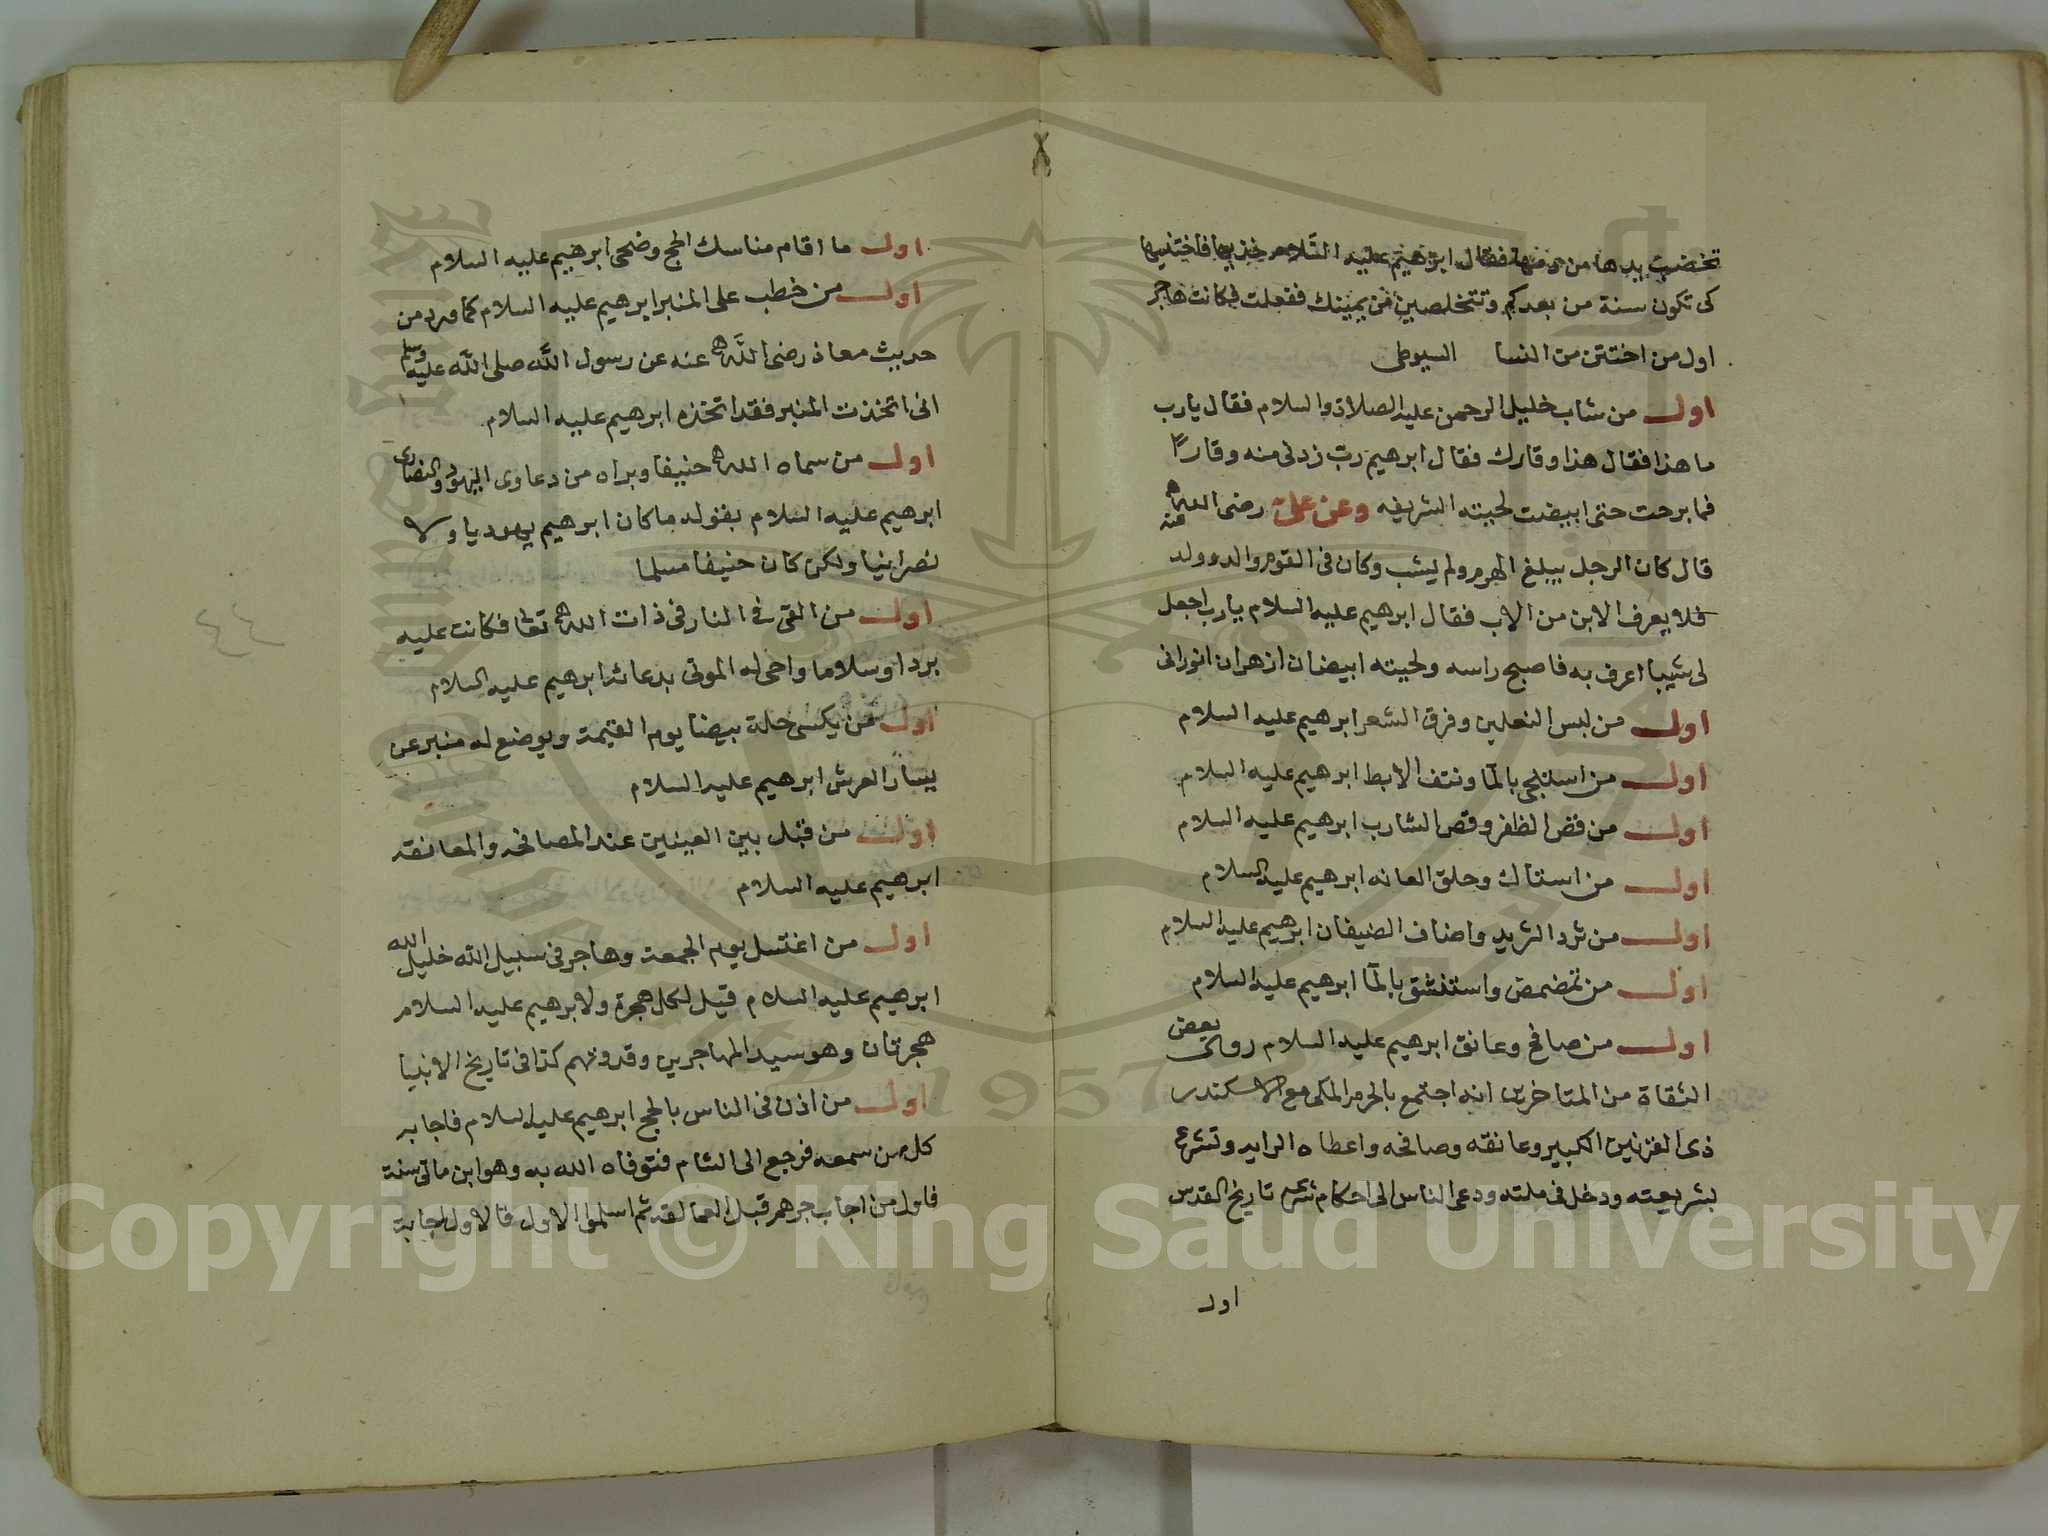 تخضبت يدها من دمها فقال ابرهيم عليه السلام خذيها فاختنيها
كى تكون سنة من بعدكم وتتخلصين من يمينك ففعلت فكانت هاجر
اول من اختتن من النسا السيوطى
اول من شاب خليل الرحمن عليه الصلاة والسلام فقال يارب
ما هذا فقال هذا وقارك فقال ابرهيم رب زدنى منه وقارًا
فما برحت حتى ابيضت لحيته الشريفه وعن على رضى الله عنه
قال كان الرجل يبلغ الهرم ولم يشب وكان فى القوم والد وولد
فلا يعرف الابن من الاب فقال ابرهيم عليه السلام يارب اجعل
لى شيبا اعرف به فاصبح راسه ولحيته ابيضان ازهران انورانى
اول من لبس النعلين وفرق الشعر ابرهيم عليه السلام
اول من استنجى بالما ونتف الابط ابرهيم عليه السلام
اول من قص الظفر وقص الشارب ابرهيم عليه السلام
اول من استاك وحلق العانه ابرهيم عليه السلام
اول من ثرد الثريد واضاف الضيفان ابرهيم عليه السلام
اول من تمضمض واستنشق بالما ابرهيم عليه السلام
اول من صافح وعانق ابرهيم عليه السلام روى بعض
الثقاة من المتاخرين انه اجتمع بالحرم المكى مع الاسكندر
ذى القرنين الكبير وعانقه وصافحه واعطاه الرايه وتشرع
بشريعته ودخل فى ملته ودعى الناس الى احكام شرعه تاريخ القدس
اول
اول ما اقام مناسك الحج وضحى ابرهيم عليه السلام
اول من خطب على المنبر ابرهيم عليه السلام كما ورد من
حديث معاذ رضى الله عنه عن رسول الله صلى الله عليه وسلم
انى اتخذت المنبر فقد اتخذه ابرهيم عليه السلام
اول من سماه الله حنيفا وبراه من دعاوى اليهود والنصارى
ابرهيم عليه السلام بقوله ما كان ابرهيم يهوديا ولا
نصرانيا ولكن كان حنيفا مسلما
اول من القى فى النار فى ذات الله تعا فكانت عليه
بردا وسلاما واحى له الموتى بدعائه ابرهيم عليه السلام
اول من يكسى حلة بيضا يوم القيمة ويوضع له منبر عن
يسار العرش ابرهيم عليه السلام
اول من قبل بين العينين عند المصافحه والمعانقه
ابرهيم عليه السلام
اول من اغتسل يوم الجمعة وهاجر فى سبيل الله خليل الله
ابرهيم عليه السلام قيل لكل هجرة ولابرهيم عليه السلام
هجرتان وهو سيد المهاجرين وقدوتهم كذا فى تاريخ الانبيا
اول من اذن فى الناس بالحج ابرهيم عليه السلام فاجابه
كل من سمعه فرجع الى الشام فتوفاه الله به وهو ابن ماتى سنة
فاول من اجاب جرهم قبل العمالقه ثم اسلموا الاول فالاول اجابة
٤٤
1957
Copyright © King Saud University